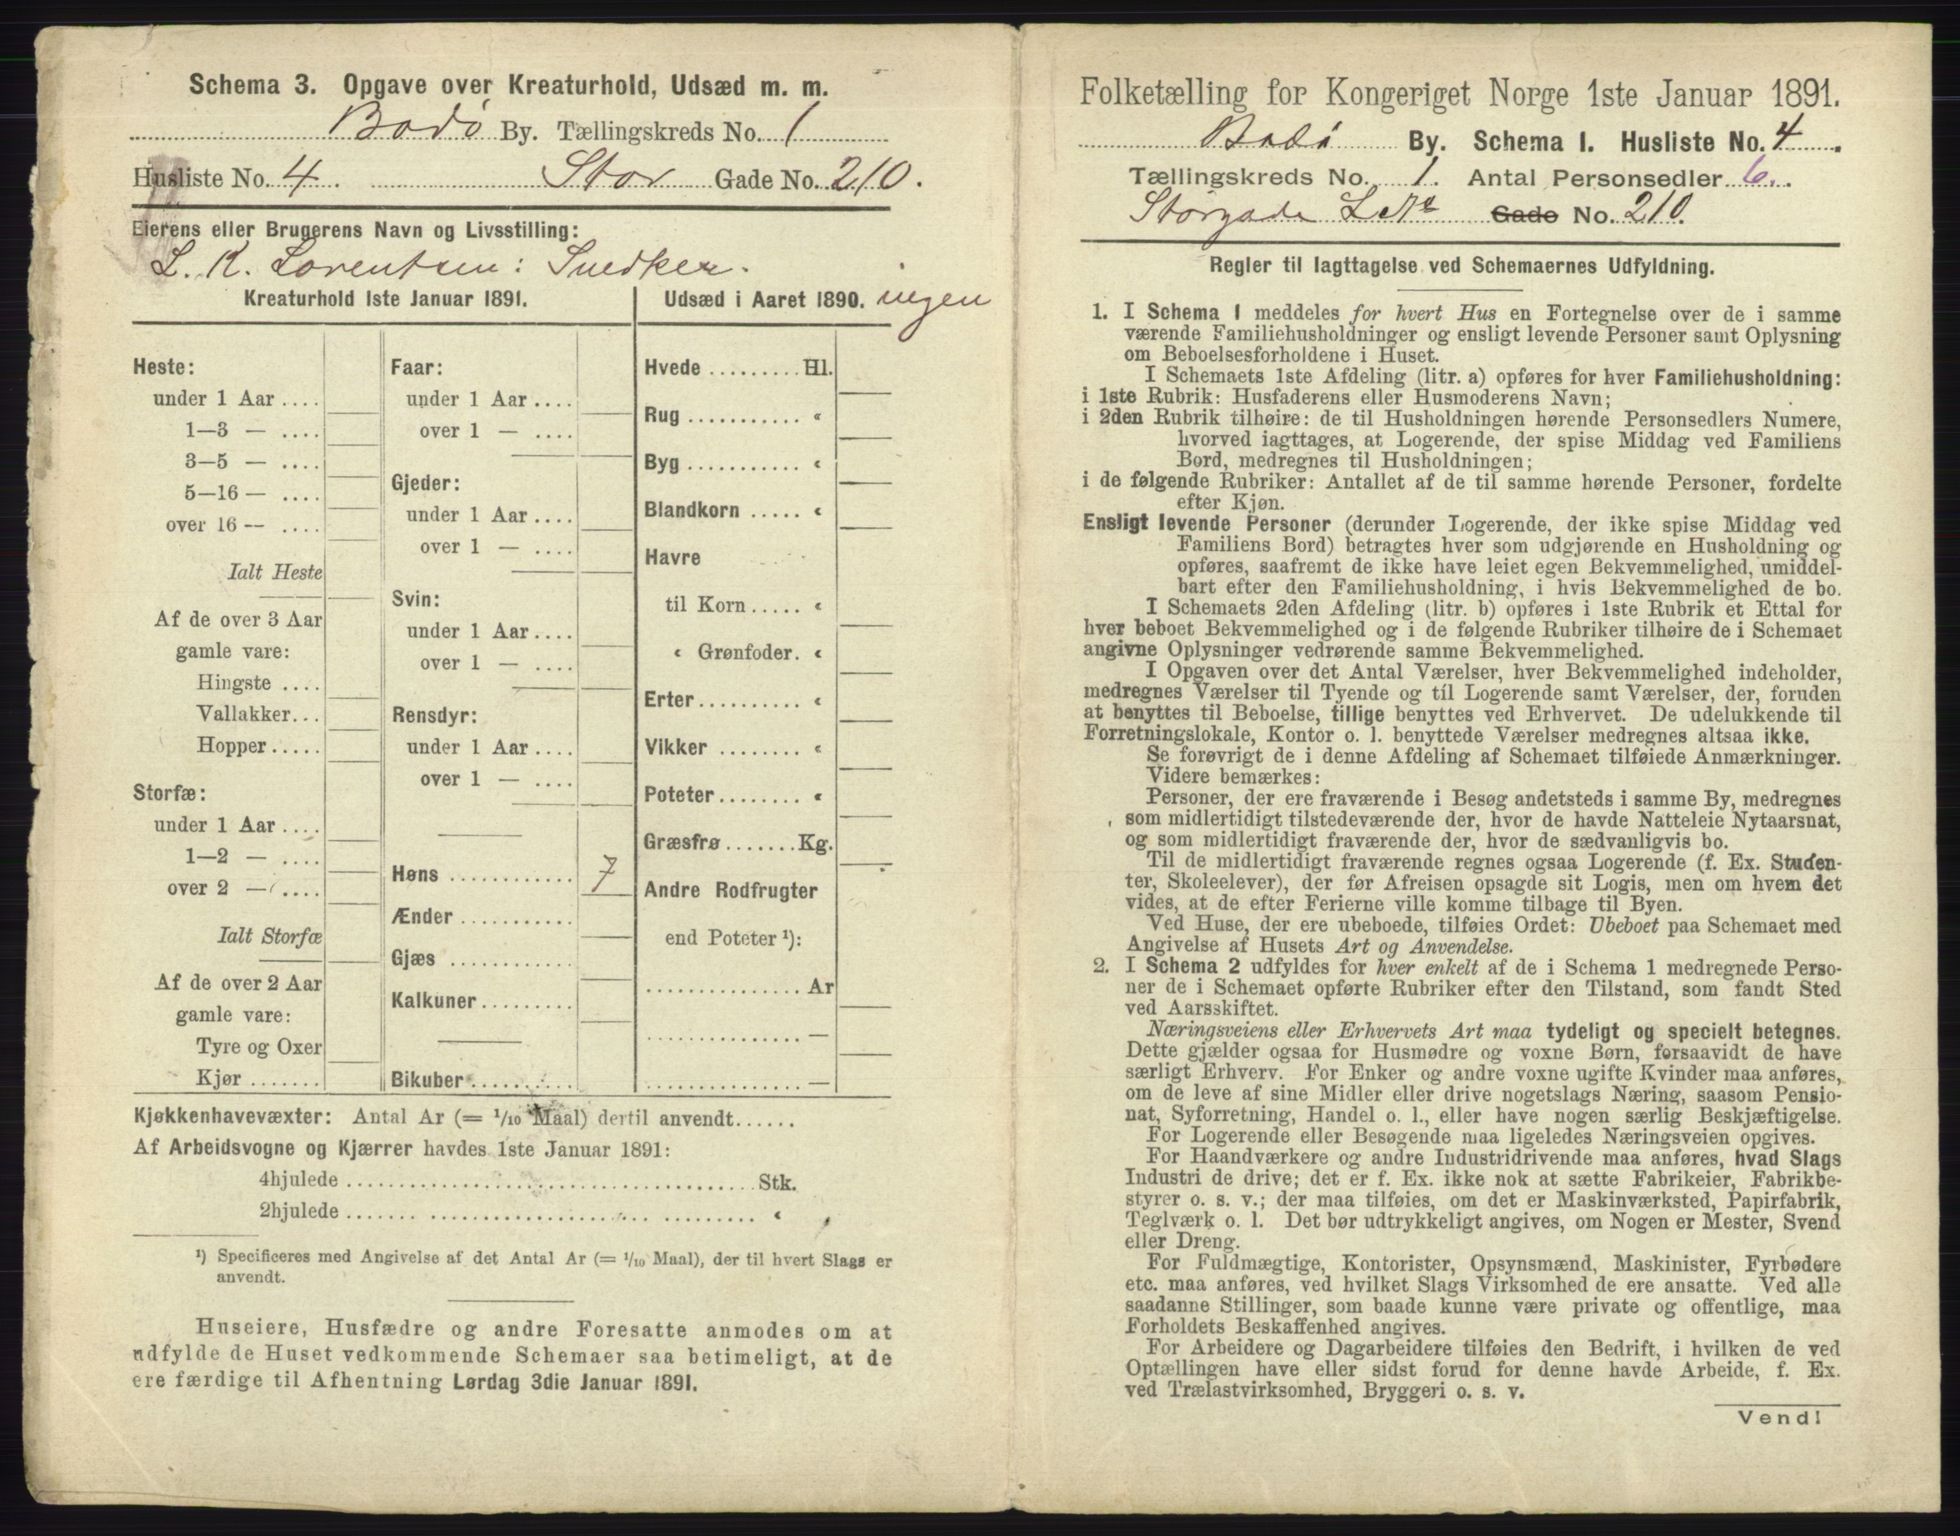 Schema 3. Opgave over Kreaturhold, Udsæd m. m.
Bodø By. Tællingskreds No. 1
Husliste No. 4. Stor Gade No. 210.
Eierens eller Brugerens Navn og Livsstilling:
L. K. Lorentsen: Snedker.
Kreaturhold 1ste Januar 1891.
Heste:
under 1 Aar ....
1—3 — ....
3—5 — ....
5—16 — ....
over 16 — ....
Ialt Heste
Af de over 3 Aar
gamle vare:
Hingste ....
Vallakker...
Hopper.....
Storfæ:
under 1 Aar ....
1—2 — ....
over 2 — ....
Ialt Storfæ
Af de over 2 Aar
gamle vare:
Tyre og Oxer
Kjør .......
Faar:
under 1 Aar ....
over 1 — ....
Gjeder:
under 1 Aar ....
over 1 — ....
Svin:
under 1 Aar ....
over 1 — ....
Rensdyr:
under 1 Aar ....
over 1 — ....
Høns ............ 7
Ænder ...........
Gjæs ............
Kalkuner.........
Bikuber..........
Udsæd i Aaret 1890. ingen
Hvede ......... Hl.
Rug ........... «
Byg ........... «
Blandkorn ..... «
Havre
til Korn ..... «
« Grønfoder. «
Erter.......... «
Vikker ........ «
Poteter........ «
Græsfrø ....... Kg.
Andre Rodfrugter
end Poteter ¹):
............... Ar
............... —
............... —
Kjøkkenhavevæxter: Antal Ar (= 1/10 Maal) dertil anvendt......
Af Arbeidsvogne og Kjærrer havdes 1ste Januar 1891:
4hjulede ........................................ Stk.
2hjulede ........................................ «
¹) Specificeres med Angivelse af det Antal Ar (= 1/10 Maal), der til hvert Slags er
anvendt.
Huseiere, Husfædre og andre Foresatte anmodes om at
udfylde de Huset vedkommende Schemaer saa betimeligt, at de
ere færdige til Afhentning Lørdag 3die Januar 1891.
Folketælling for Kongeriget Norge 1ste Januar 1891.
Bodø By. Schema I. Husliste No. 4.
Tællingskreds No. 1. Antal Personsedler 6.
Storgade Gade No. 210.
Regler til Iagttagelse ved Schemaernes Udfyldning.
1. I Schema 1 meddeles for hvert Hus en Fortegnelse over de i samme
værende Familiehusholdninger og ensligt levende Personer samt Oplysning
om Beboelsesforholdene i Huset.
I Schemaets 1ste Afdeling (litr. a) opføres for hver Familiehusholdning:
i 1ste Rubrik: Husfaderens eller Husmoderens Navn;
i 2den Rubrik tilhøire: de til Husholdningen hørende Personsedlers Numere,
hvorved iagttages, at Logerende, der spise Middag ved Familiens
Bord, medregnes til Husholdningen;
i de følgende Rubriker: Antallet af de til samme hørende Personer, fordelte
efter Kjøn.
Ensligt levende Personer (derunder Logerende, der ikke spise Middag ved
Familiens Bord) betragtes hver som udgjørende en Husholdning og
opføres, saafremt de ikke have leiet egen Bekvemmelighed, umiddel-
bart efter den Familiehusholdning, i hvis Bekvemmelighed de bo.
I Schemaets 2den Afdeling (litr. b) opføres i 1ste Rubrik et Ettal for
hver beboet Bekvemmelighed og i de følgende Rubriker tilhøire de i Schemaet
angivne Oplysninger vedrørende samme Bekvemmelighed.
I Opgaven over det Antal Værelser, hver Bekvemmelighed indeholder,
medregnes Værelser til Tyende og til Logerende samt Værelser, der, foruden
at benyttes til Beboelse, tillige benyttes ved Erhvervet. De udelukkende til
Forretningslokale, Kontor o. l. benyttede Værelser medregnes altsaa ikke.
Se forøvrigt de i denne Afdeling af Schemaet tilføiede Anmærkninger.
Videre bemærkes:
Personer, der ere fraværende i Besøg andetsteds i samme By, medregnes
som midlertidigt tilstedeværende der, hvor de havde Natteleie Nytaarsnat,
og som midlertidigt fraværende der, hvor de sædvanligvis bo.
Til de midlertidigt fraværende regnes ogsaa Logerende (f. Ex. Studen-
ter, Skoleelever), der før Afreisen opsagde sit Logis, men om hvem det
vides, at de efter Ferierne ville komme tilbage til Byen.
Ved Huse, der ere ubeboede, tilføies Ordet: Ubeboet paa Schemaet med
Angivelse af Husets Art og Anvendelse.
2. I Schema 2 udfyldes for hver enkelt af de i Schema 1 medregnede Perso-
ner de i Schemaet opførte Rubriker efter den Tilstand, som fandt Sted
ved Aarsskiftet.
Næringsveiens eller Erhvervets Art maa tydeligt og specielt betegnes.
Dette gjælder ogsaa for Husmødre og voxne Børn, forsaavidt de have
særligt Erhverv. For Enker og andre voxne ugifte Kvinder maa anføres,
om de leve af sine Midler eller drive nogetslags Næring, saasom Pensio-
nat, Syforretning, Handel o. l., eller have nogen særlig Beskjæftigelse.
For Logerende eller Besøgende maa ligeledes Næringsveien opgives.
For Haandværkere og andre Industridrivende maa anføres, hvad Slags
Industri de drive; det er f. Ex. ikke nok at sætte Fabrikeier, Fabrikbe-
styrer o. s. v.; der maa tilføies, om det er Maskinværksted, Papirfabrik,
Teglværk o. l. Det bør udtrykkeligt angives, om Nogen er Mester, Svend
eller Dreng.
For Fuldmægtige, Kontorister, Opsynsmænd, Maskinister, Fyrbødere
etc. maa anføres, ved hvilket Slags Virksomhed de ere ansatte. Ved alle
saadanne Stillinger, som baade kunne være private og offentlige, maa
Forholdets Beskaffenhed angives.
For Arbeidere og Dagarbeidere tilføies den Bedrift, i hvilken de ved
Optællingen have eller sidst forud for denne havde Arbeide, f. Ex.
ved Trælastvirksomhed, Bryggeri o. s. v.
Vend!